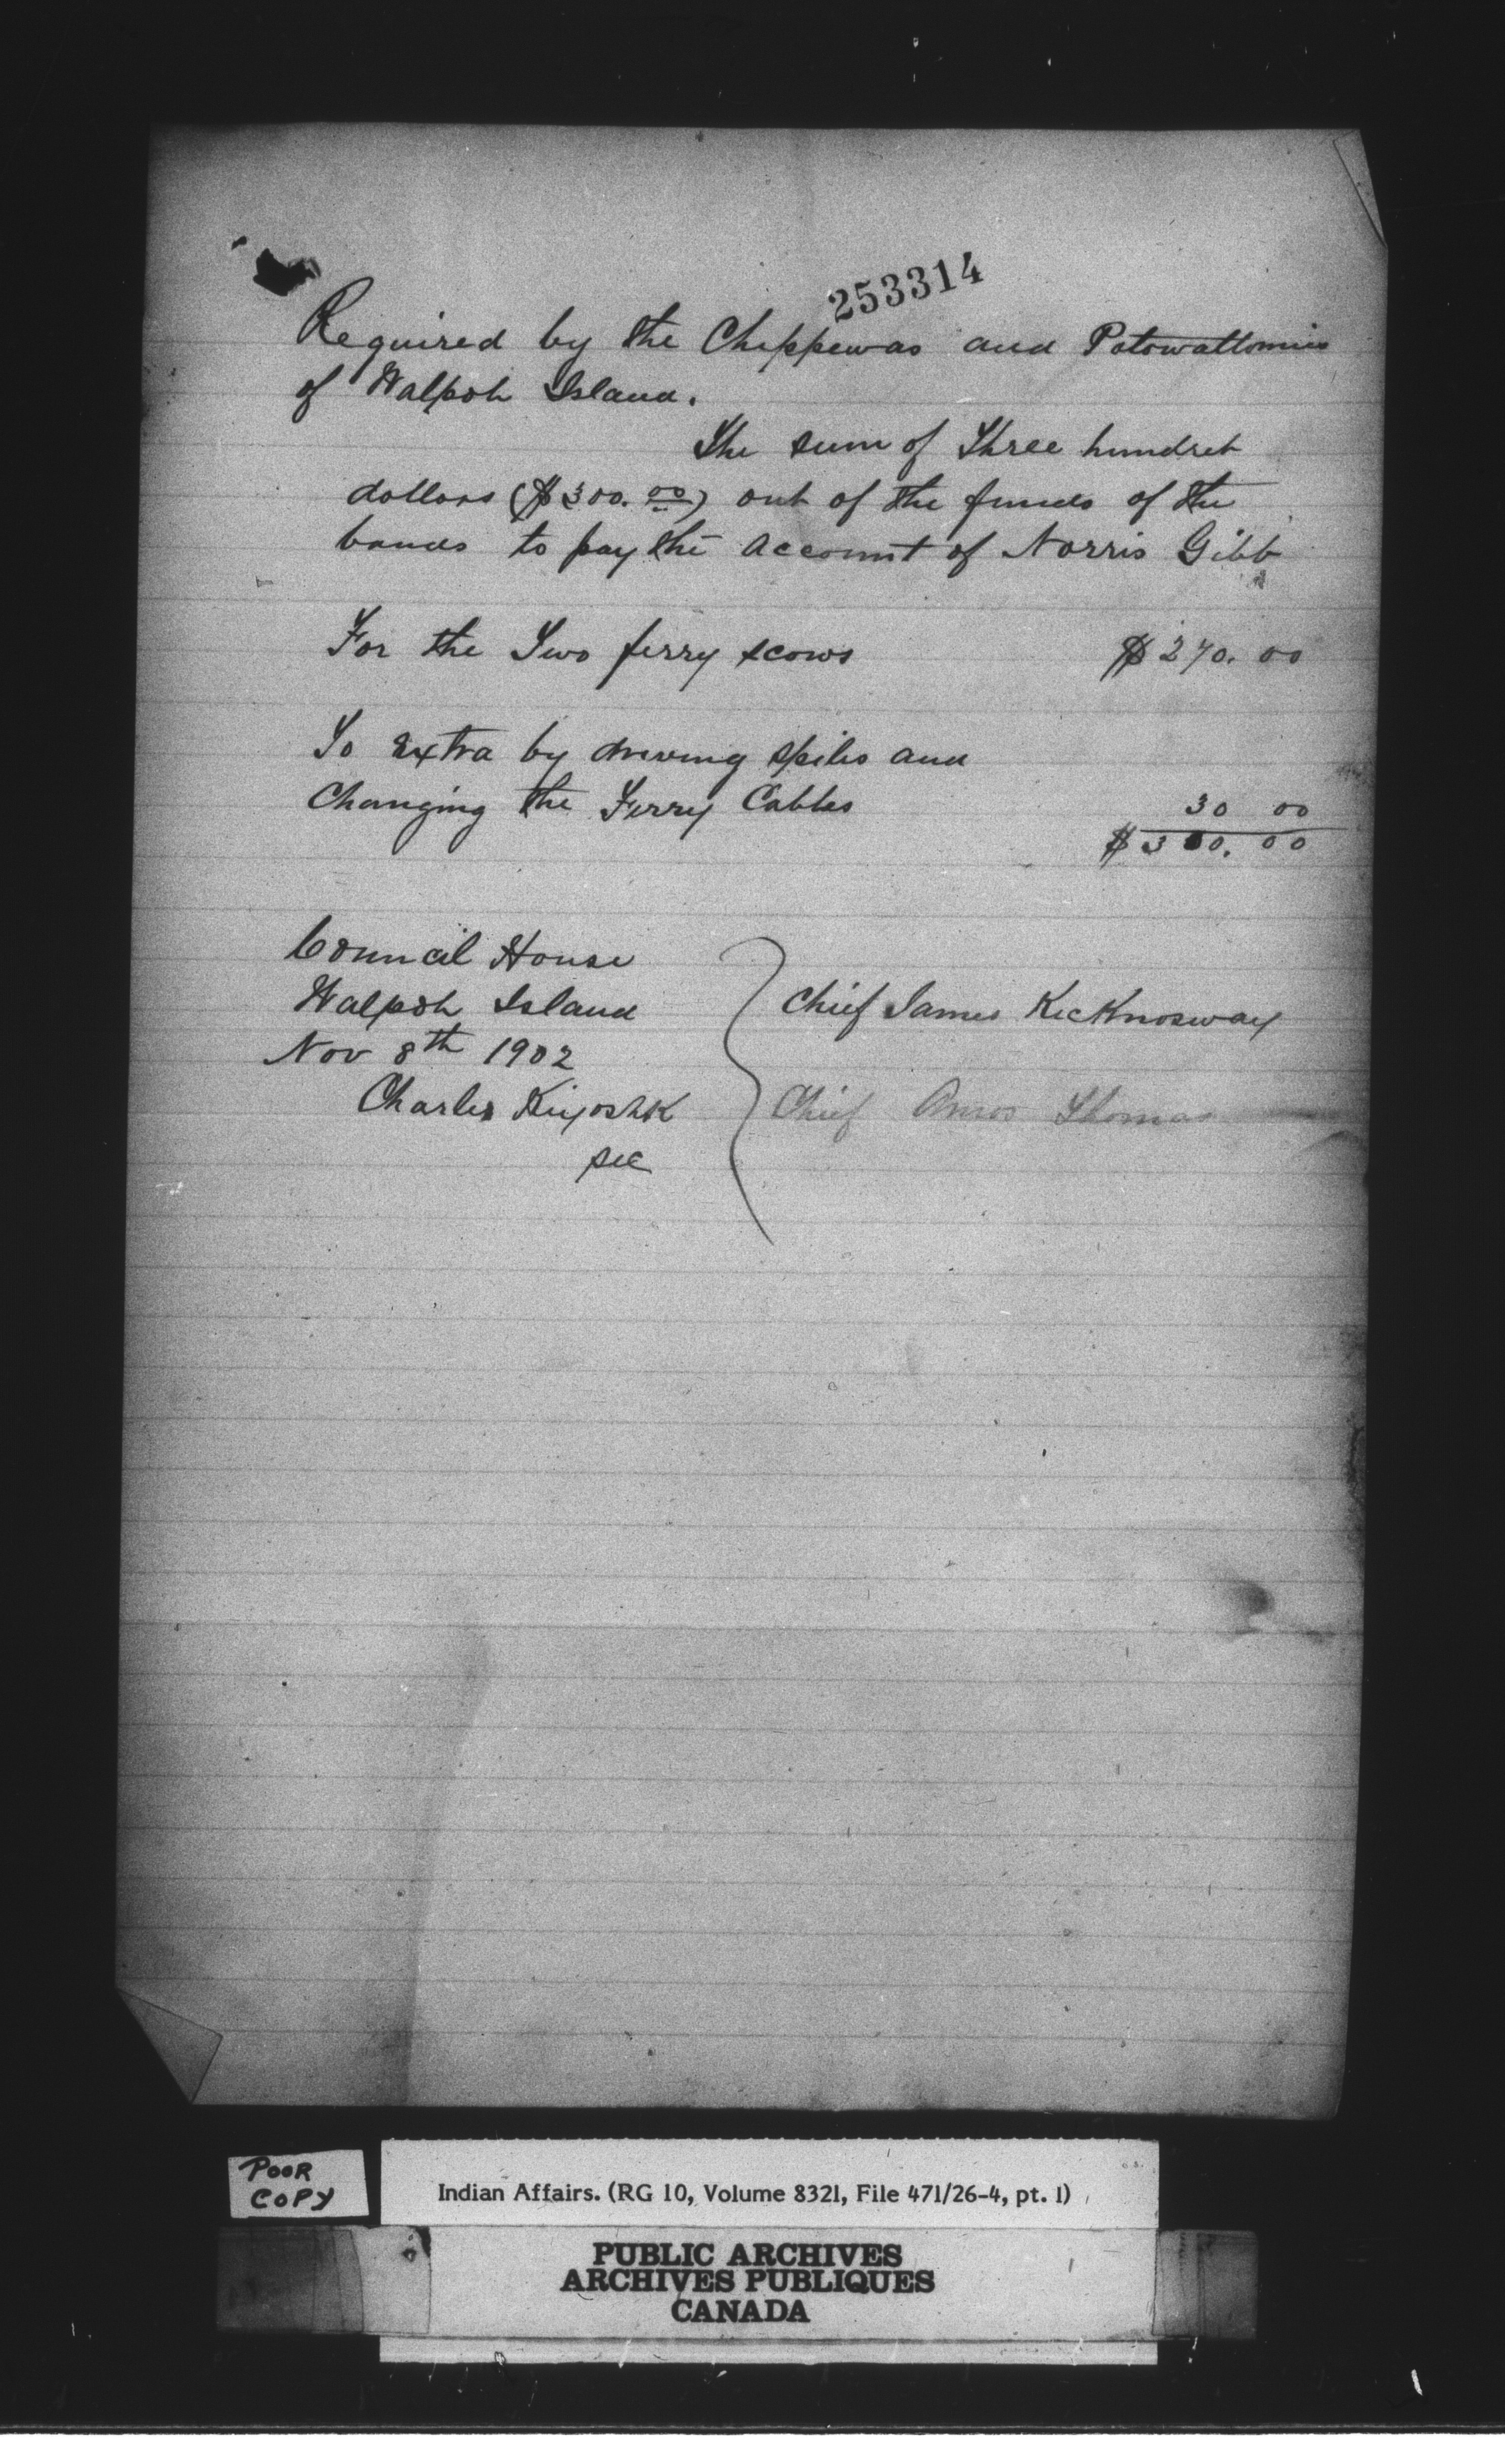 253314
Required by the Chippewas and Potowattomies
of Walpole Island.
The sum of Three hundret
dollars ($300.00) out of the funds of the
bands to pay the Account of Norris Gibb
For the Two ferry scows $270.00
To Extra by driving spiles and
Changing the Ferry Cables 30 00
$300.00
Council House
Walpole Island
Nov 8th 1902
Charles Kiyoshk
sec
Chief James KicKnosway
Chief Amos Thomas
POOR
COPY
Indian Affairs. (RG 10, Volume 8321, File 471/26-4, pt. 1)
PUBLIC ARCHIVES
ARCHIVES PUBLIQUES
CANADA